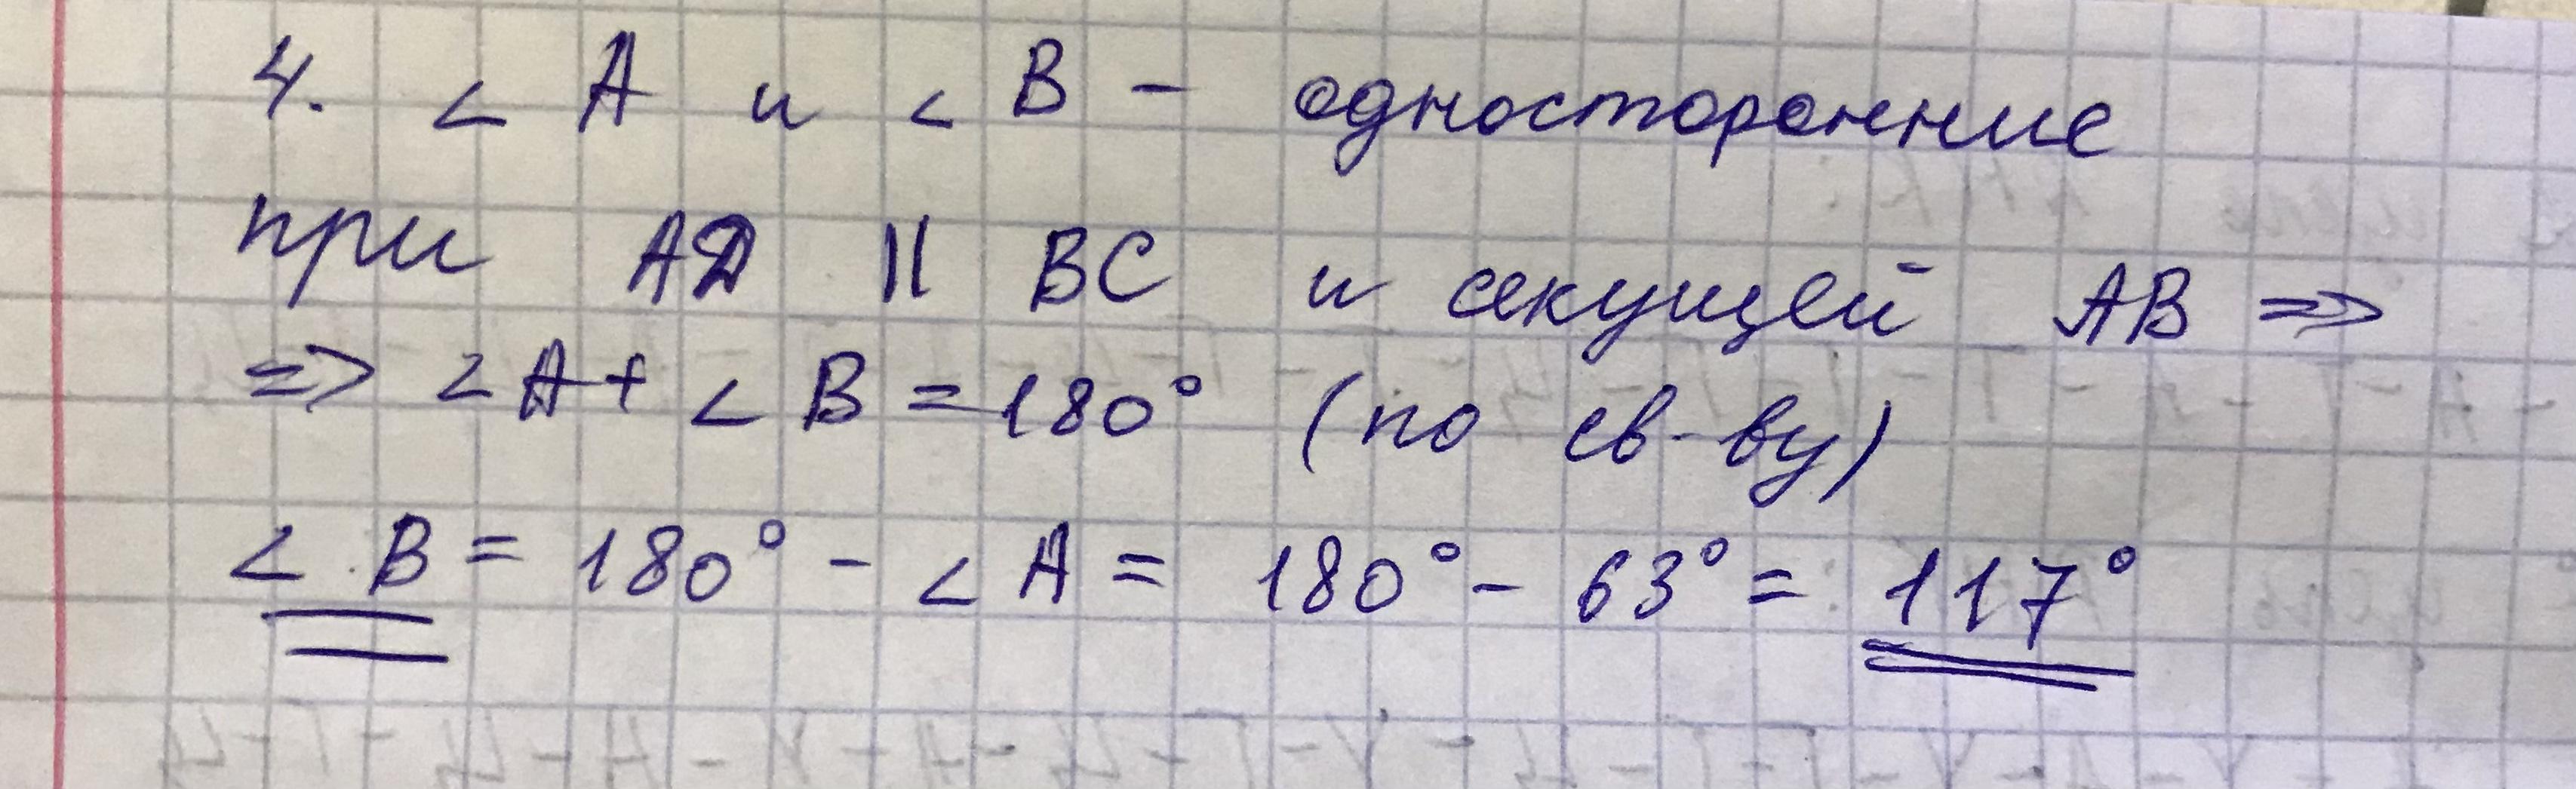 4. ∠ A и ∠ B - односторонние
при AD || BC и секущей AB =>
=> ∠A + ∠ B = 180° (по св-ву)
∠ B = 180° - ∠ A = 180° - 63° = 117°